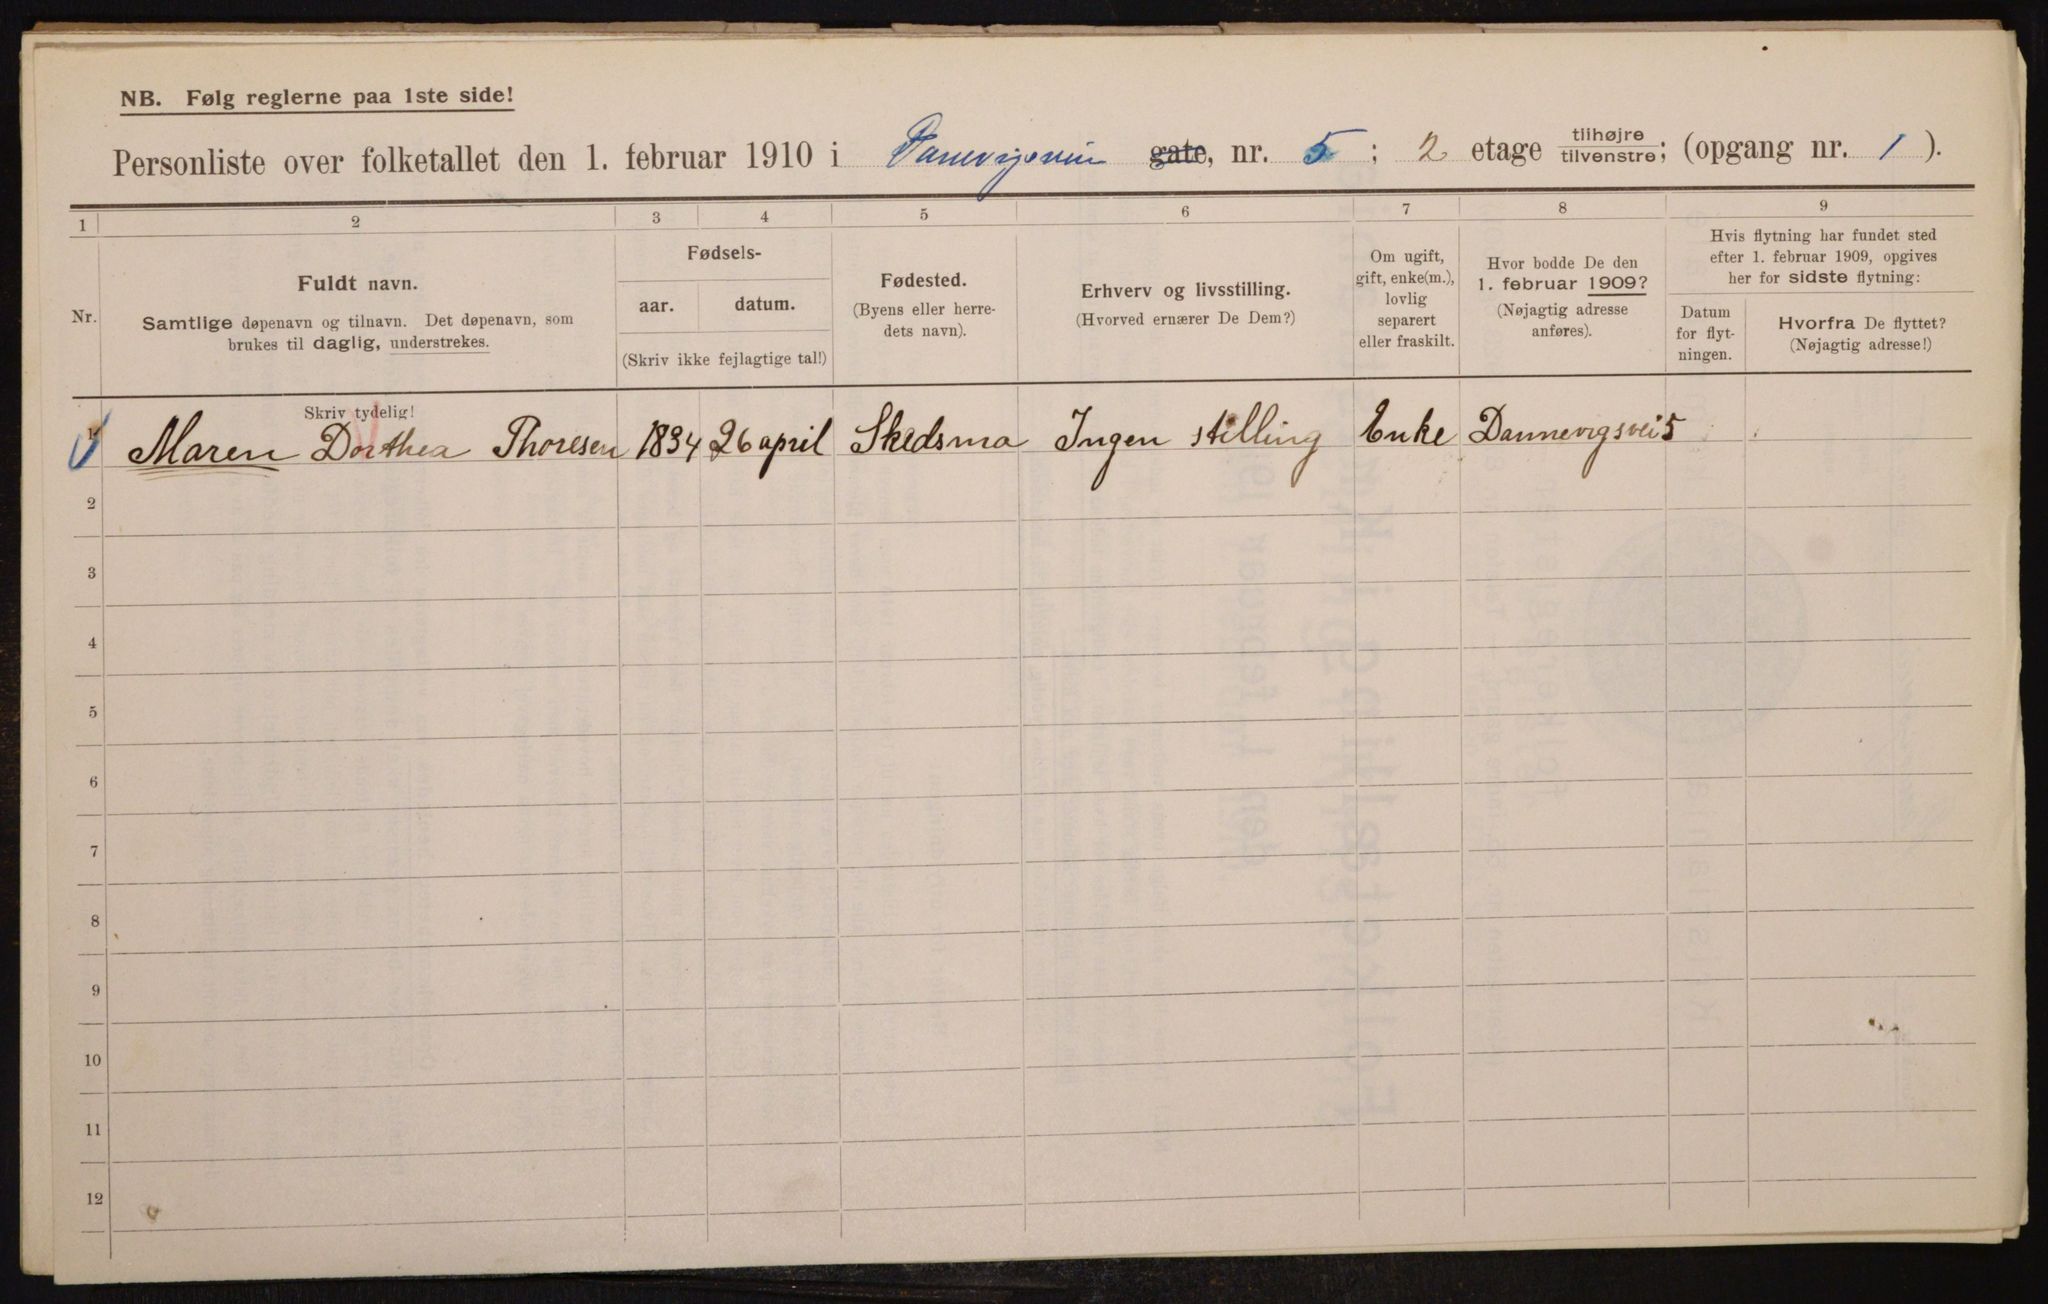 NB. Følg reglerne paa 1ste side!
Personliste over folketallet den 1. februar 1910 i Danevigsvein gate, nr. 5 ; 2 etage tilhøjre/tilvenstre; (opgang nr. 1 ).
1 2 3 4 5 6 7 8 9
Nr.
Fuldt navn.
Samtlige døpenavn og tilnavn. Det døpenavn, som
brukes til daglig, understrekes.
Skriv tydelig!
Fødsels-
aar. datum.
(Skriv ikke fejlagtige tal!)
Fødested.
(Byens eller herre-
dets navn).
Erhverv og livsstilling.
(Hvorved ernærer De Dem?)
Om ugift,
gift, enke(m.),
lovlig
separert
eller fraskilt.
Hvor bodde De den
1. februar 1909?
(Nøjagtig adresse
anføres).
Hvis flytning har fundet sted
efter 1. februar 1909, opgives
her for sidste flytning:
Datum
for flyt-
ningen.
Hvorfra De flyttet?
(Nøjagtig adresse!)
1 Maren Dorthea Thoresen 1834 26 april Skedsmo Ingen stilling Enke Dannevigsvei 5
2
3
4
5
6
7
8
9
10
11
12